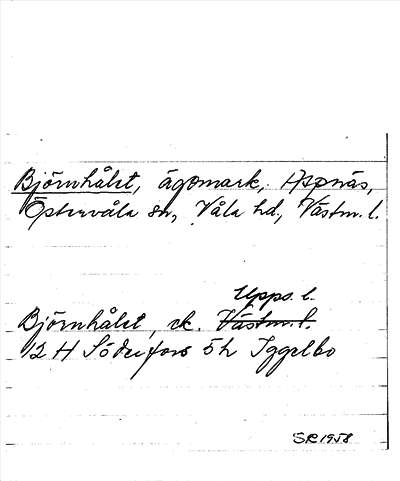 Björnhålet, ägomark, Aspnäs,
Östervåla sn, Våla hd, Västm. l.
Upps. l.
Björnhålet, ek. Västm. l.
12 H Söderfors 5h Iggelbo
SR 1958